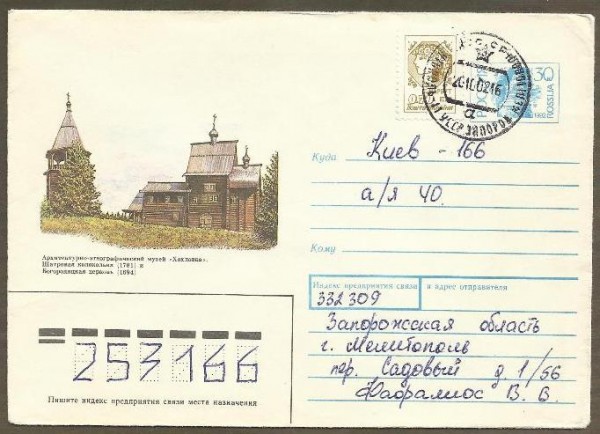 30
ROSSIJA
1992
20.10.02 16
УССР ЗАПОРОЖ
а
Куда Киев - 166
а/я 40.
Кому
Архитектурно-этнографический музей «Хохловка».
Шатровая колокольня (1781) и
Богородицкая церковь (1694)
Индекс предприятия связи и адрес отправителя
332309
Запорожская область
г. Мелитополь
пер. Садовый д 1/56
В. В.
253166
Пишите индекс предприятия связи места назначения